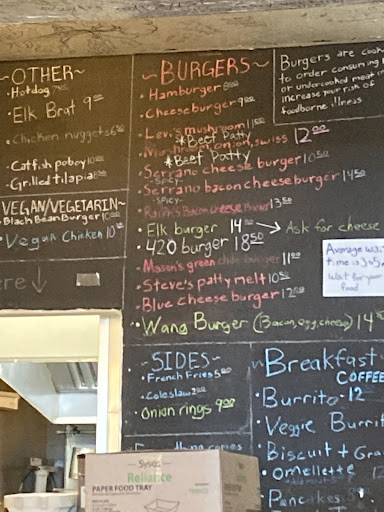 ~OTHER~
•Hotdog
•Elk Brat 9.00
•Chicken nuggets 6
•Catfish poboy 10.00
•Grilled tilapia 8
VEGAN/VEGETARIN~
•Black Bean Burger 10.00
•Vegan Chicken 10
ere ↓
~BURGERS~
•Hamburger
•Cheeseburger 9.00
•Levi's mushroom 11.00
*Beef Patty
•Mushroom, onion, swiss 12.00
*Beef Patty
•Serrano cheese burger 10.50
-spicy-
•Serrano bacon cheese burger 14.50
-spicy-
Bacon cheese 13.50
•Elk burger 14.00 → Ask for cheese
•420 burger 18.50
•Mason's green chile burger 11.00
•Steve's patty melt 10.50
•Blue cheese burger 12.00
•Wang Burger (Bacon, egg, cheese) 14
Burgers are cook
to order consuming
or undercooked meat
increase your risk of
foodborne illness
Average wai
time is
Wait for your
food
~SIDES~
•French Fries 5.00
•Coleslaw 2.00
•Onion rings 9.00
~Breakfast
COFFEE
•Burrito • 12
•Veggie Burrit
•Biscuit + Gra
•Omellette 12
•Pancakes
Sysco
Reliance
PAPER FOOD TRAY